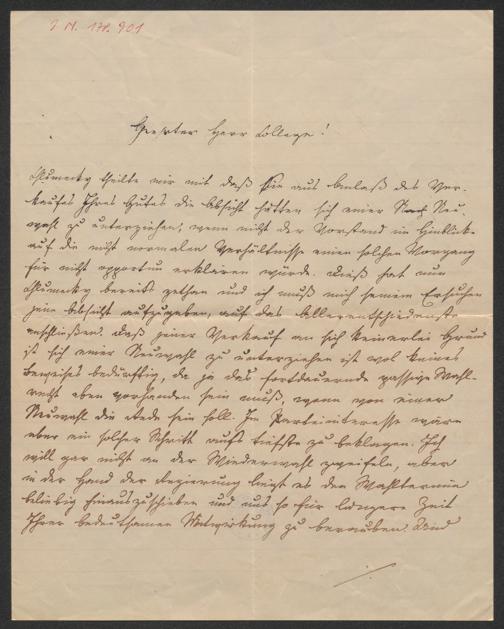 I. N. 178.901
Geehrter Herr College!
Chlumecky theilte mir mit daß Sie aus Anlaß des Ver-
kaufes Ihres Gutes die Absicht hätten sich einer Neu
wahl zu unterziehen, wenn nicht der Vorstand im Hinblicke
auf die nicht normalen Verhältnisse einen solchen Vorgang
für nicht opportun erklären würde. Dieß hat nun
Chlumecky bereits gethan und ich muß mich seinem Ersuchen
jene Absicht aufzugeben, auf das Allerentschiedenste
anschließen. Daß jener Verkauf an sich keinerlei Grund
ist sich einer Neuwahl zu unterziehen ist wol keines
Beweises bedürftig, da ja das fortdauernde passive Wahl-
recht eben vorhanden sein muß, wenn von einer
Neuwahl die Rede sein soll. Im Parteiinteresse wäre
aber ein solcher Schritt aufs tiefste zu beklagen. Ich
will gar nicht an der Wiederwahl zweifeln, aber
in der Hand der Regierung liegt es den Wahltermin
beliebig hinauszuschieben und uns so für längere Zeit
Ihrer bedeutsamen Mitwirkung zu berauben. Und